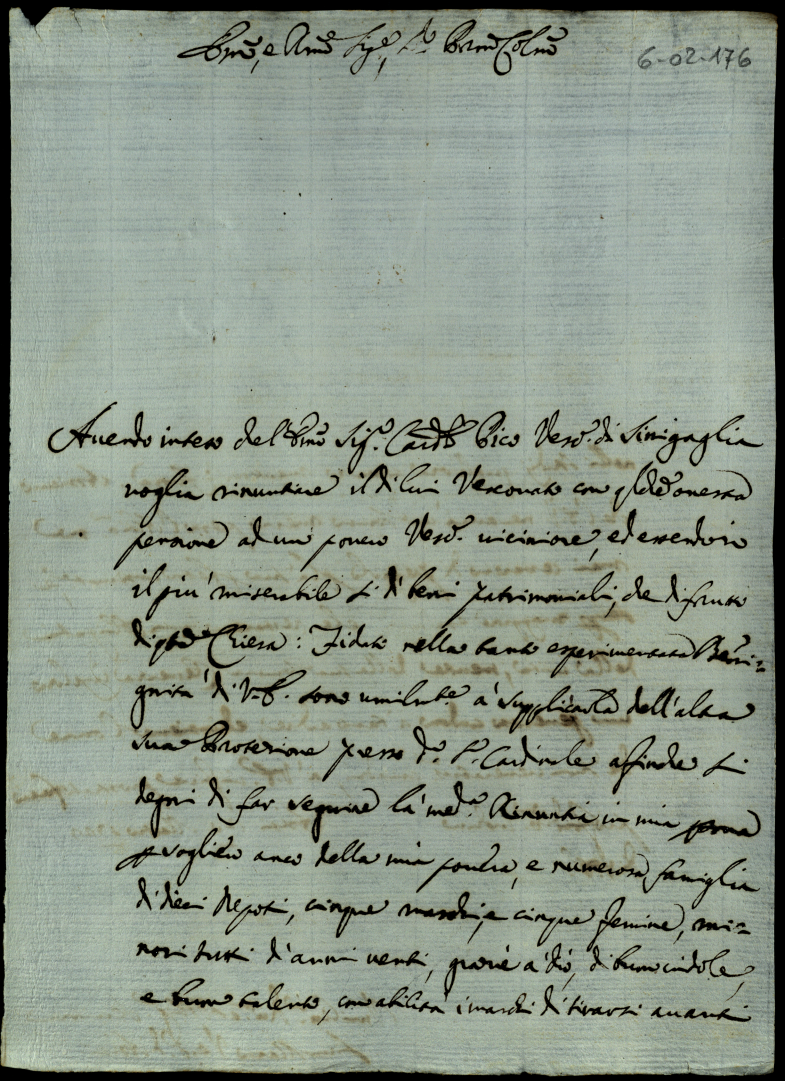 Em̃o, e Rm̃o Sig.e, P.ne Col̃mo
6-02-176
Auendo inteso che l'Em̃o Sig.r Card.l Pico Vesc.o di Sinigaglia
voglia rinuntiare il di lui Vescouato con onesta
pensione ad un pouero Vesc.o uiciniore, ed essendo io
il più miserabile sì di beni patrimoniali, che di frutto
di q.ta Chiesa: Fidato nella tanto esperimentata Beni=
gnità di V. E. sono umilm.te à supplicarla dell'alta
sua Protezione presso d.o S.r Cardinale affinche si
degni di far seguire la med.a Rinuntia in mia p̃sona
p̱ soglieuo anco della mia pouera, e numerosa famiglia
di dieci Nepoti, cinque maschi, e cinque femine, mi=
nori tutti d'anni uenti, grazie à Dio, di buon indole,
e buon talento, con abilità i maschi di tirarsi auanti